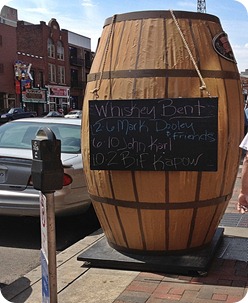 Whiskey Bent
2-6 Mark Dooley
& friends
6-10 John Karl
10-2 Bif Kapow